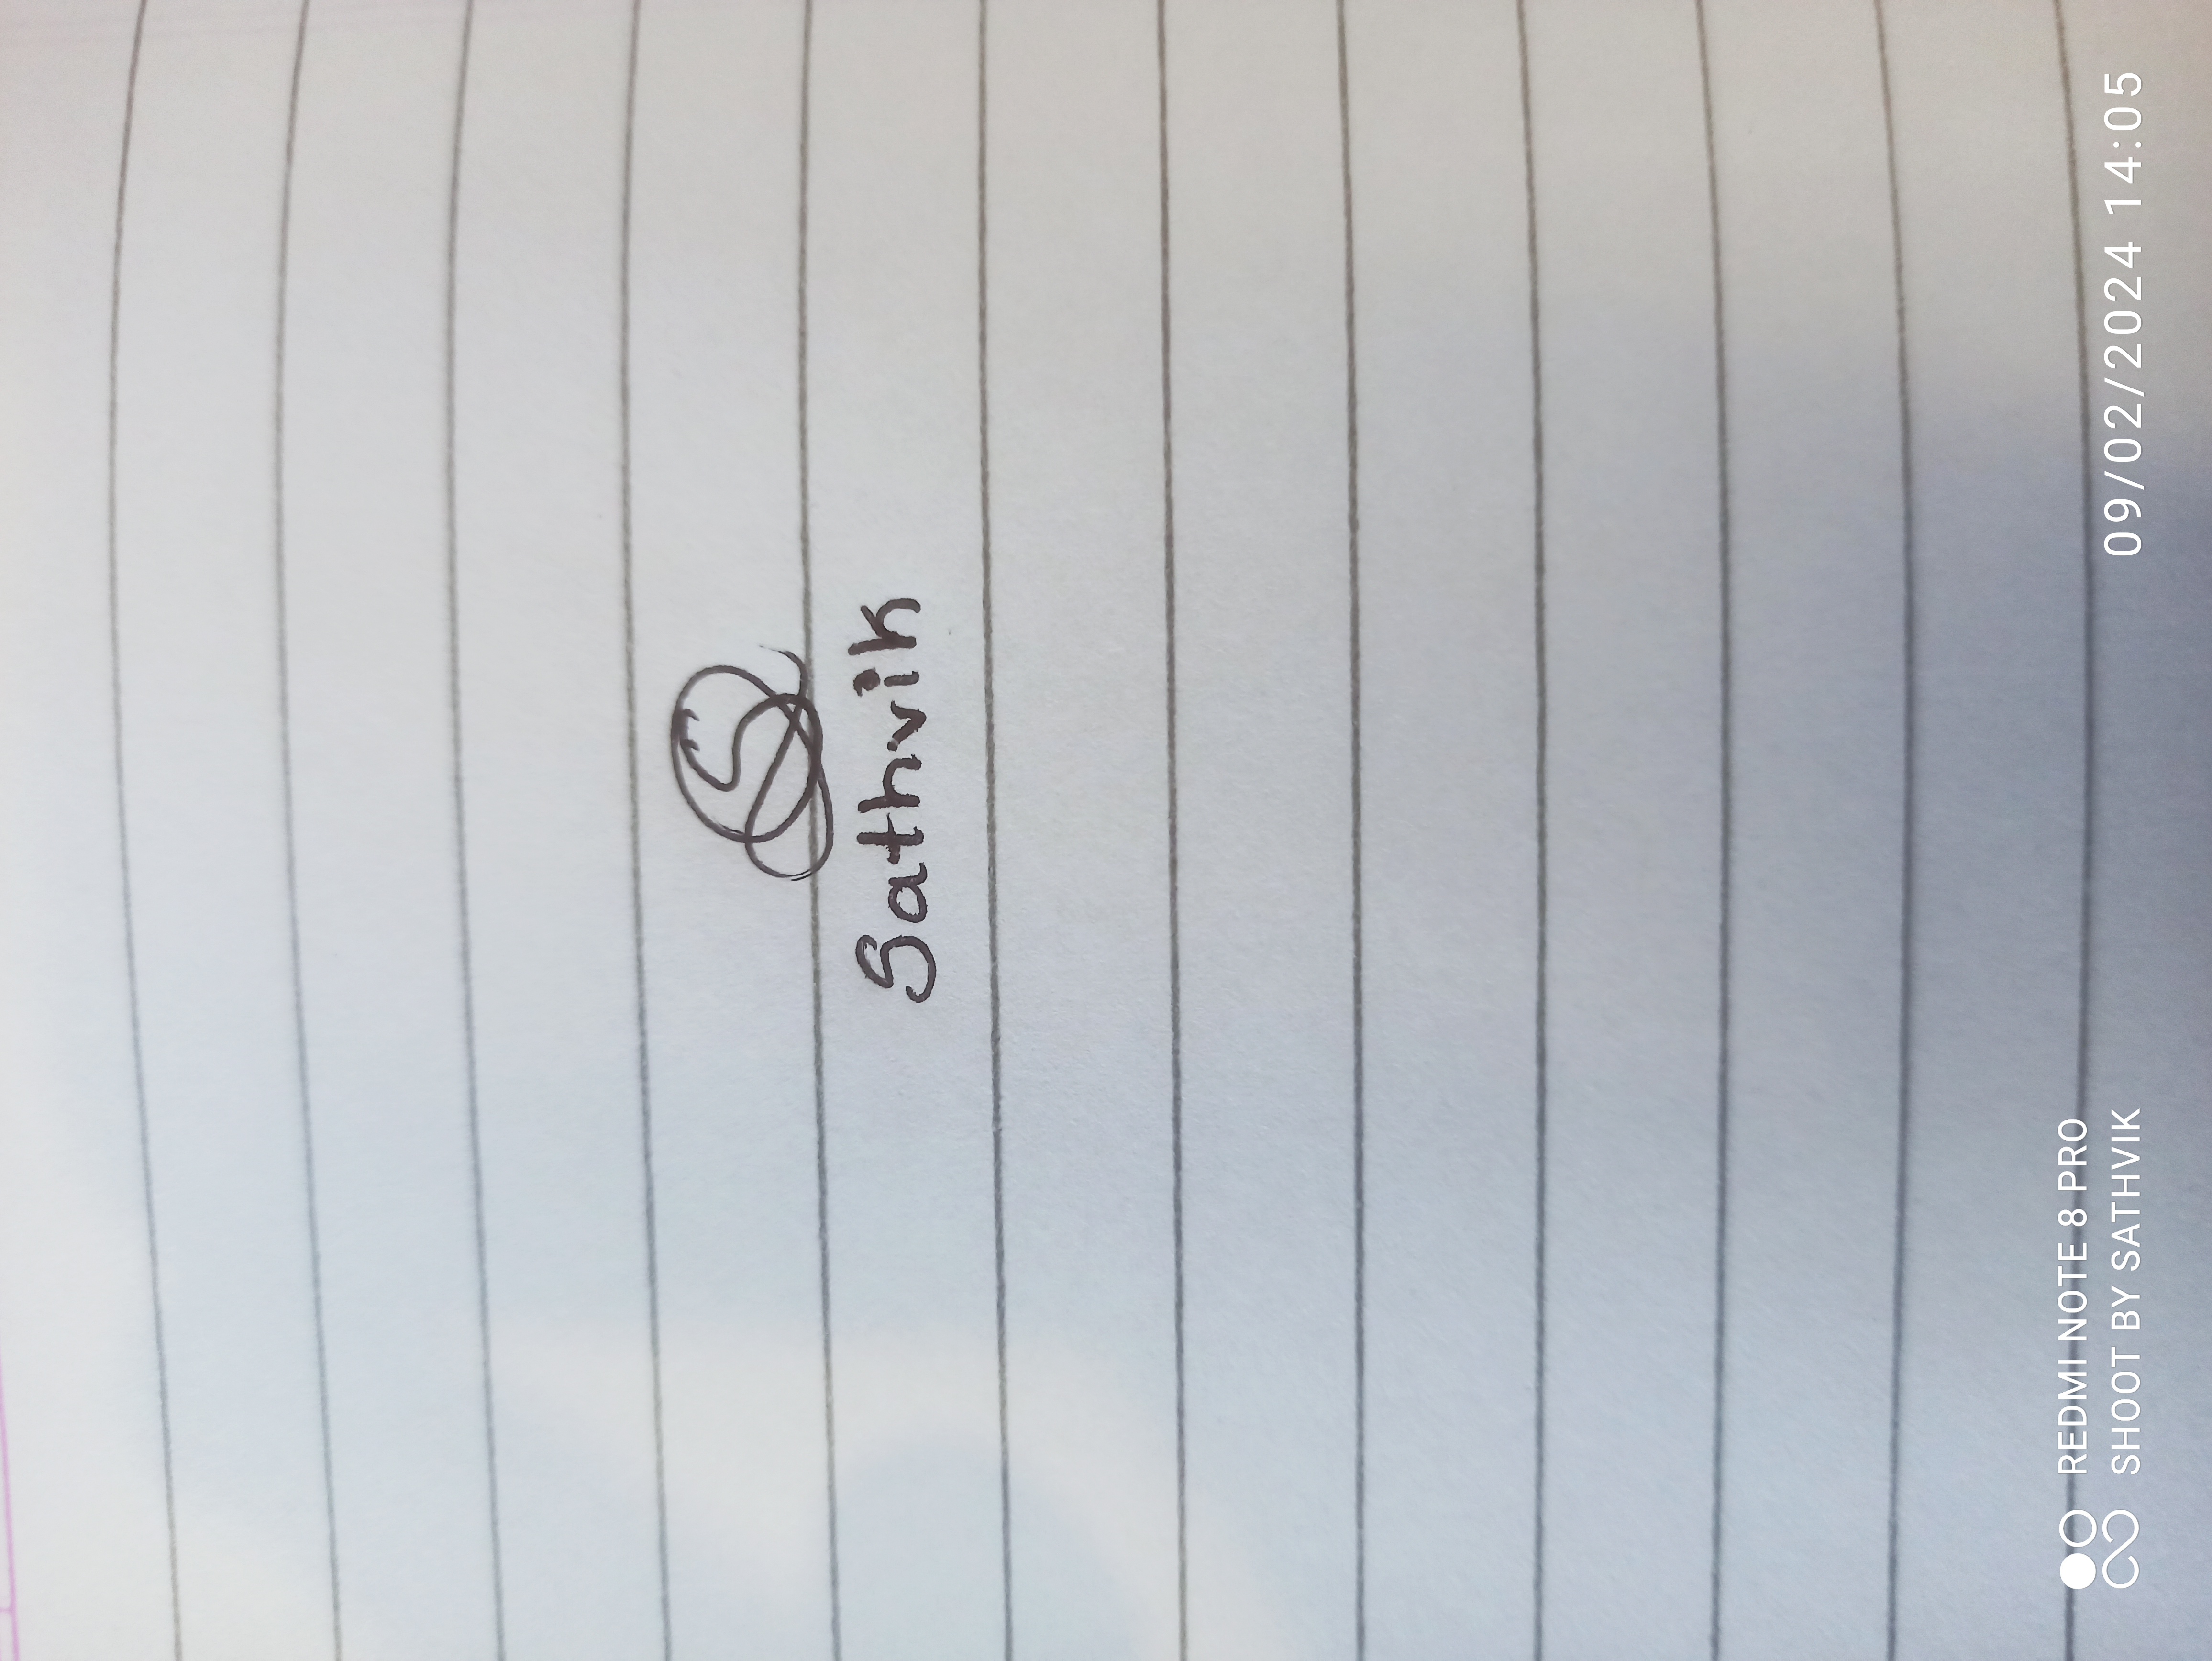 S
Sathvik
REDMI NOTE 8 PRO
SHOOT BY SATHVIK
09/02/2024 14:05